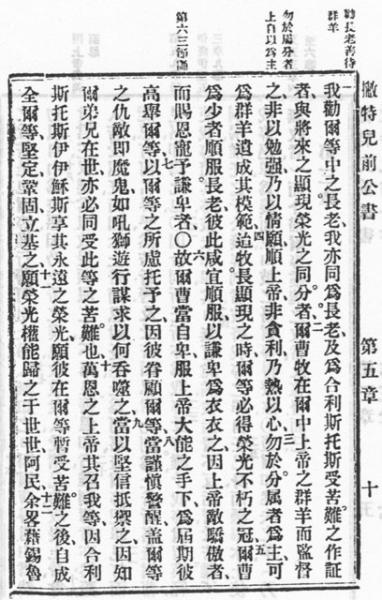 勸長老善待
群羊
勿於屬分者
上自以爲主
第六三節僅
撇特兒前公書
第五章
十
一我勸爾等中之長老我亦同爲長老及爲合利斯托斯受苦難之作証
者與將來之顯現榮光之同分者二爾曹牧在爾中上帝之群羊而監督
之非以勉强乃以情願順上帝非貪利乃熱以心三勿於分屬者爲主可
爲群羊遺成其模範四迨牧長顯現之時爾等必得榮光不朽之冠五爾曹
爲少者順服長老彼此咸宜順服以謙卑爲衣衣之因上帝敵驕傲者
而賜恩寵予謙卑者〇六故爾曹當自卑服上帝大能之手下爲屆期彼
高舉爾等七以爾等之所慮托予之因彼眷顧爾等八當謹慎警醒蓋爾等
之仇敵即魔鬼如吼獅遊行謀求以何吞噬之九當以堅信抵禦之因知
爾弟兄在世亦必同受此等之苦難也十萬恩之上帝其召我等因合利
斯托斯伊伊穌斯享其永遠之榮光願彼在爾等暫受苦難之後自成
全爾等堅定鞏固立基之十一願榮光權能歸之于世世阿民十二余畧藉錫魯